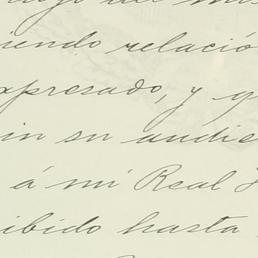 iendo relació
xpresado, y q
in su audie
á mi Real H
ibido hasta